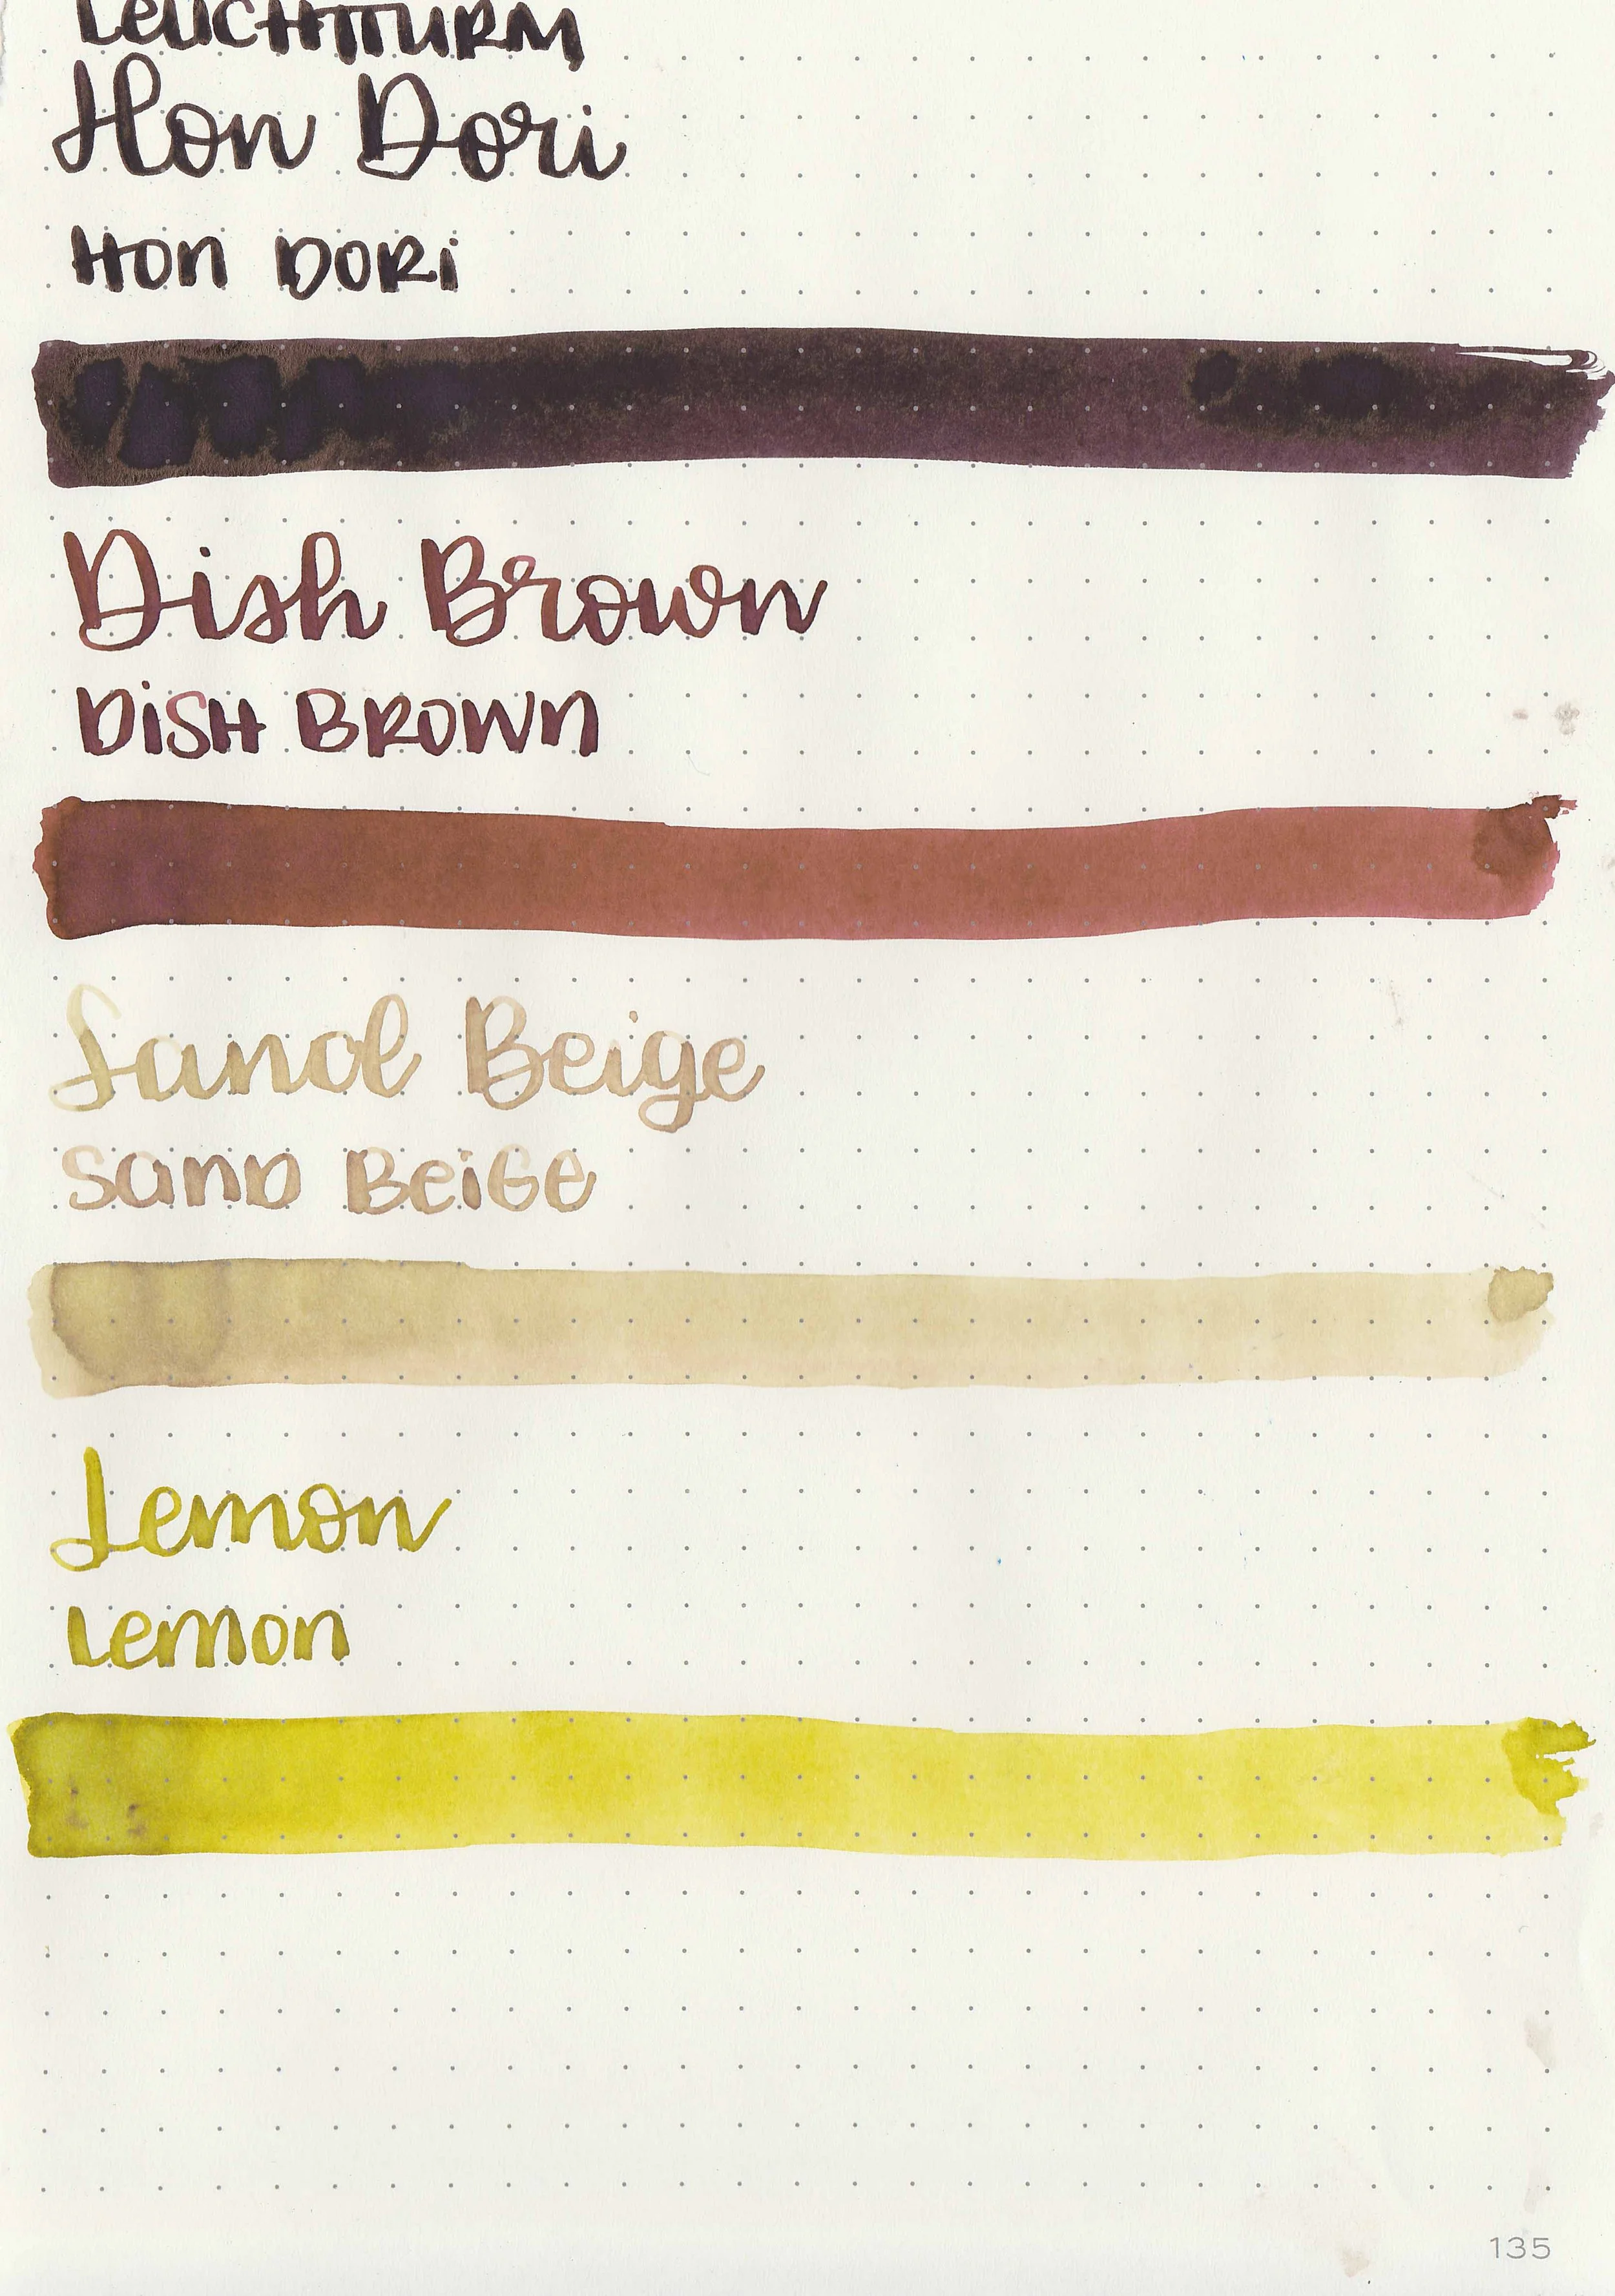 LEUCHTTURM
Hon Dori
HON DORi
Dish Brown
DiSH BROWN
Sand Beige
SAND BEiGE
Lemon
Lemon
135